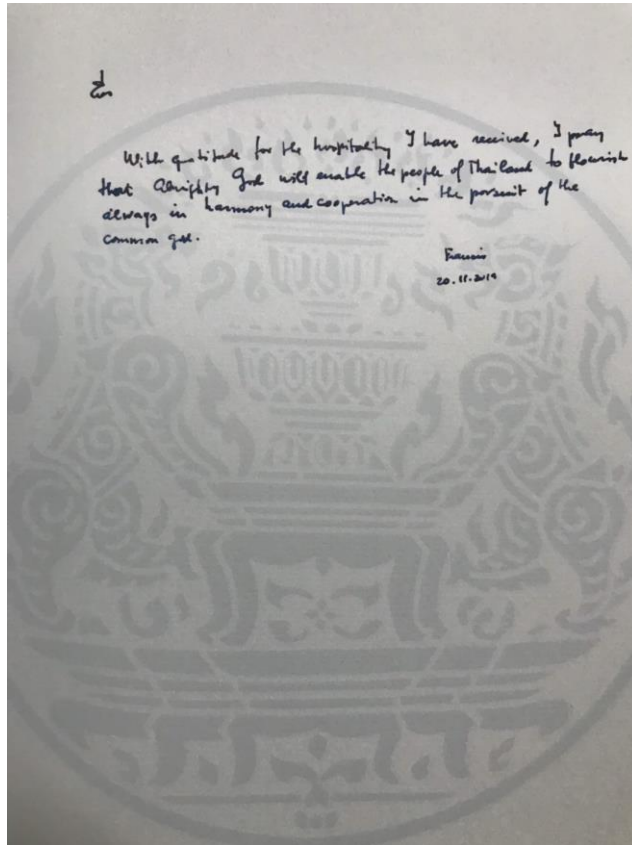 With gratitude for the hospitality I have received, I pray
that Almighty God will enable the people of Thailand to flourish
always in harmony and cooperation in the pursuit of the
common good.
Francis
20.11.2019